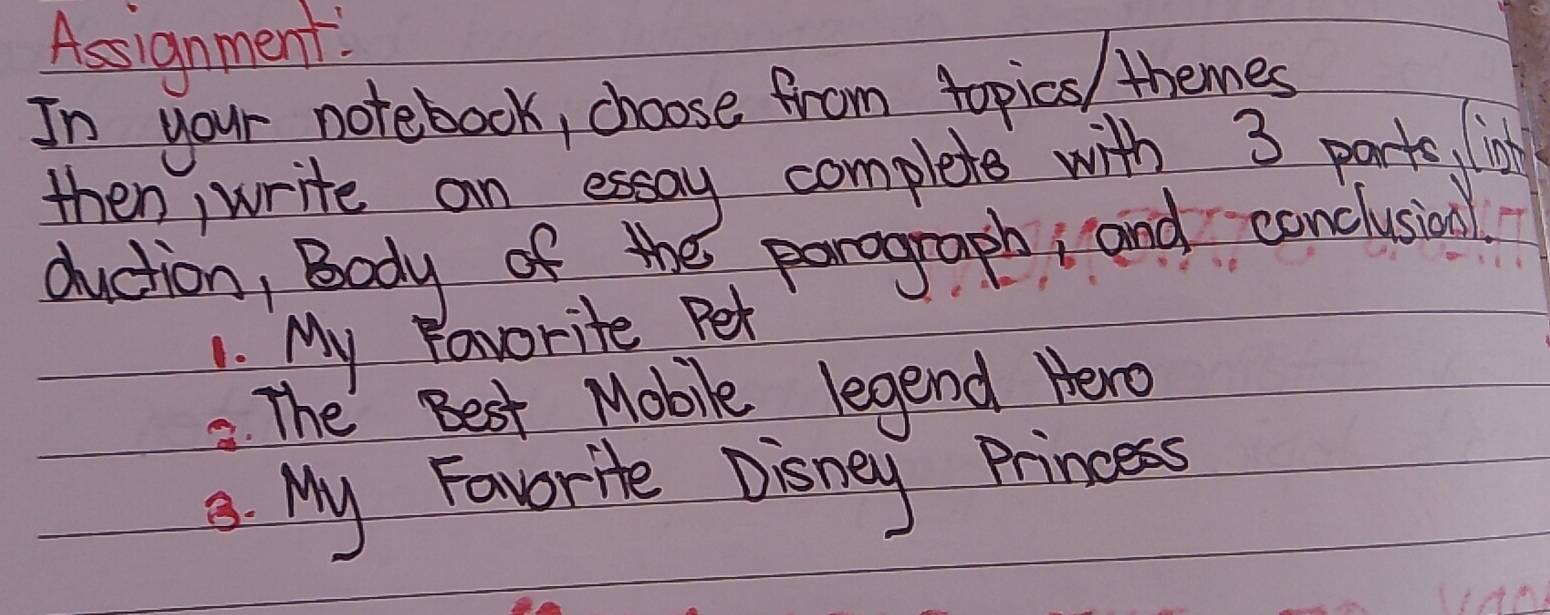 Assignment:
In your notebook, choose from topics/themes
then, write an essay complete with 3 parts, (int
duction, Body of the paragraph, and conclusion).
1. My Favorite Pet
2. The Best Mobile legend Hero
3. My Favorite Disney Princess